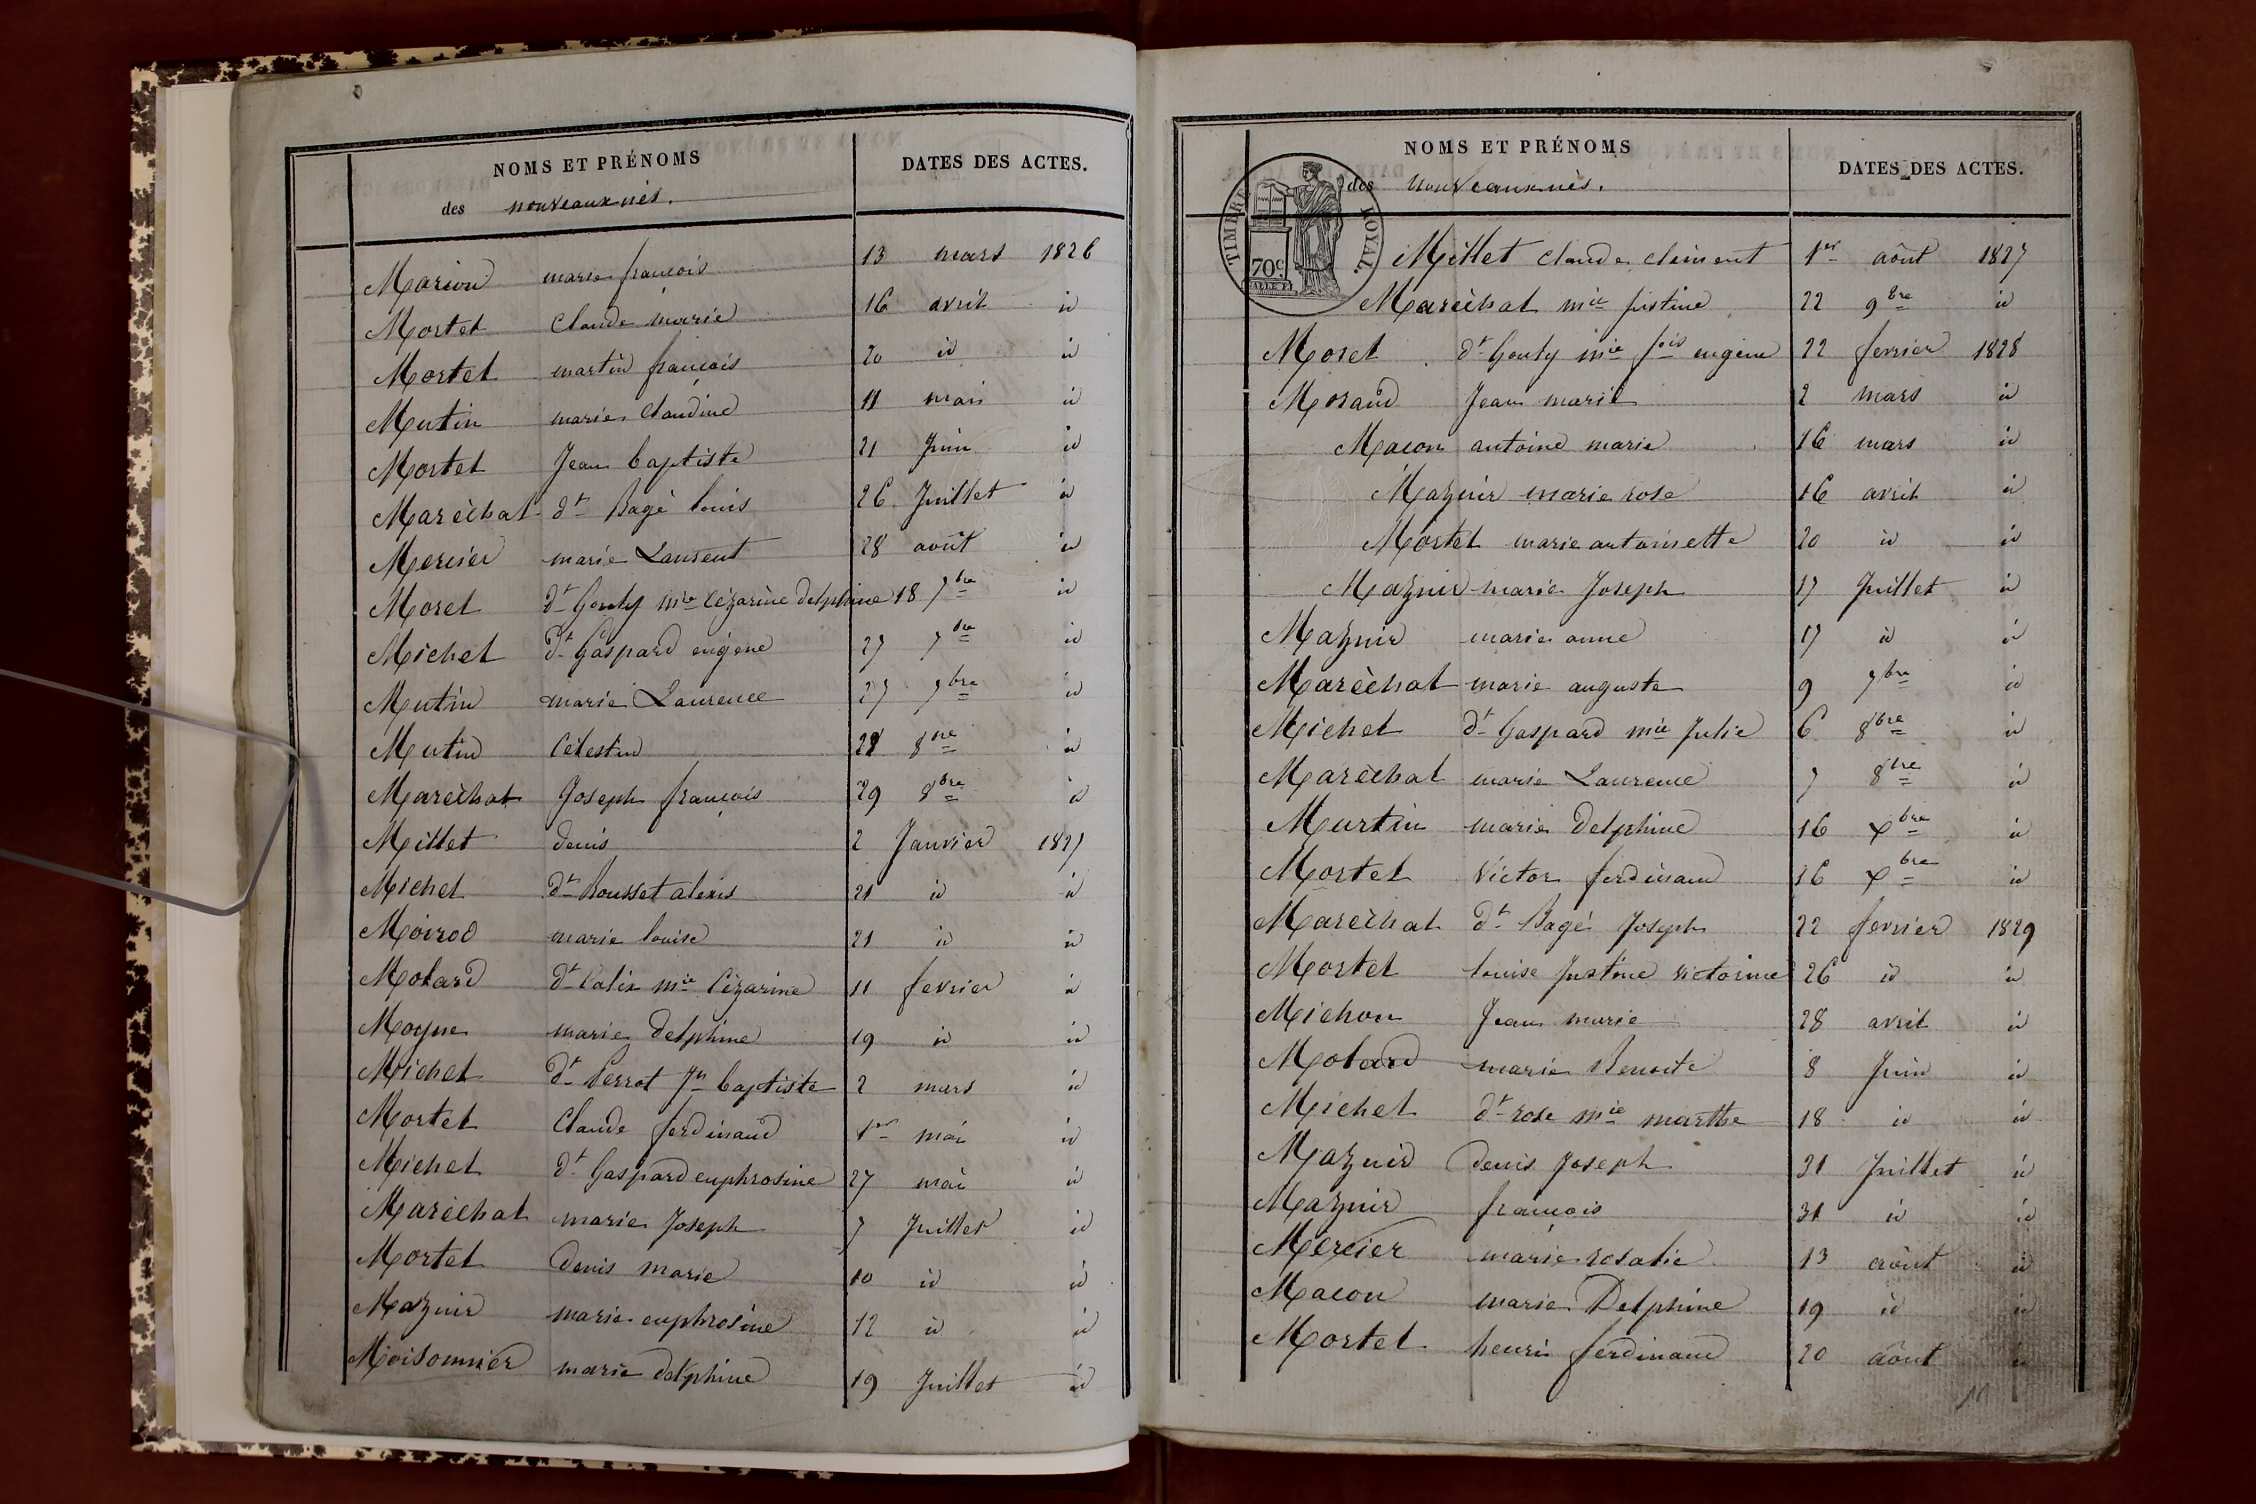 NOMS ET PRÉNOMS
des nouveaux nés.
DATES DES ACTES.
Marion marie françois 13 mars 1826
Mortet Claude marie 16 avril id
Mortet martin françois 20 id id
Mutin marie Claudine 11 mai id
Mortet Jean baptiste 21 Juin id
Maréchal dt Bagé louis 26 Juillet id
Mercier marie Laurent 28 août id
Moret dt Gouly mie Cézarine delphine 18 7bre id
Michel dt Gaspard eugene 27 7bre id
Mutin marie Laurence 27 7bre id
Mutin Célestin 28 8bre id
Maréchal Joseph françois 29 8bre id
Millet denis 2 Janvier 1827
Michel dt Rousset alexis 21 id id
Moirod marie louise 21 id id
Molard dt Calix mie Cézarine 11 fevrier id
Moyne marie delphine 19 id id
Michel dt Perrot Jn baptiste 2 mars id
Mortet Claude ferdinand 1er mai id
Michel dt Gaspard euphrosine 27 mai id
Maréchal marie Joseph 7 Juillet id
Mortet Denis marie 10 id id
Mazuir marie euphrosine 12 id id
Moisonnier marie delphine 19 Juillet id
NOMS ET PRÉNOMS
des nouveaux nés.
DATES DES ACTES.
TIMBRE ROYAL.
70c
Millet Claude clément 1er août 1827
Maréchal mie justine 22 9bre id
Moret dt Gouly mie fois eugene 22 fevrier 1828
Moraud Jean marie 2 mars id
Macon antoine marie 16 mars id
Mazuir marie rose 16 avril id
Mortet marie antoinette 20 id id
Mazuir marie Joseph 17 Juillet id
Mazuir marie anne 17 id id
Maréchal marie auguste 9 7bre id
Michel dt Gaspard mie Julie 6 8bre id
Maréchal marie Laurence 7 8bre id
Murtin marie Delphine 16 Xbre id
Mortet Victor ferdinand 16 Xbre id
Maréchal dt Bagé Joseph 22 fevrier 1829
Mortet louise Justine victorine 26 id id
Michon Jean marie 28 avril id
Molard marie Benoite 8 Juin id
Michel dt rose mie marthe 18 id id
Mazuir Denis Joseph 31 Juillet id
Mazuir françois 31 id id
Mercier marie rosalie 13 août id
Macon marie Delphine 19 id id
Mortet henri ferdinand 20 août id